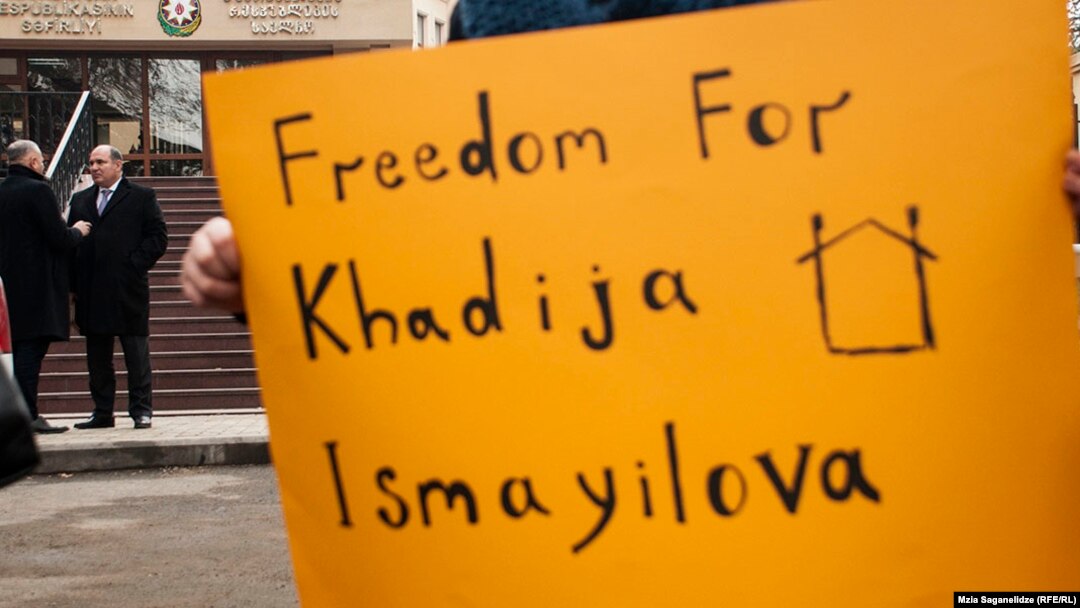 RESPUBLİKASININ
SƏFİRLİYİ
რესპუბლიკის
საელჩო
Freedom For
Khadija
Ismayilova
Mzia Saganelidze (RFE/RL)